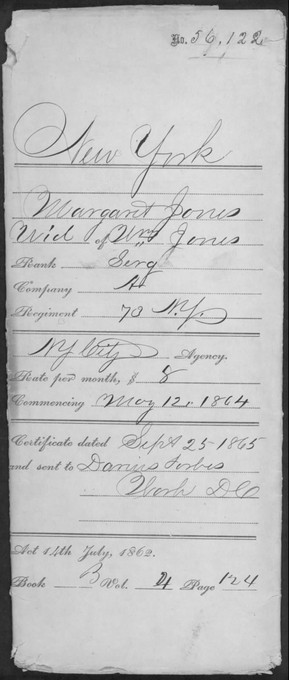 No. 56,122
New York
Margaret Jones
Wid of Wm Jones
Rank Serg
Company A
Regiment 73 N.Y.
N Y City Agency.
Rate per month, $ 8
Commencing May 12, 1864
Certificate dated Sept 25 1865
and sent to Darius Forbes
Wash D C
Act 14th July, 1862.
Book B Vol. 4 Page 124